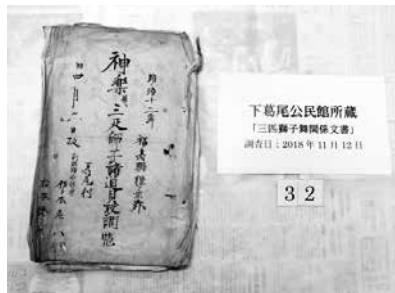 明治十二年
福島縣標葉郡
神樂三疋獅子諸道具設調帳
四月
改
葛尾村
下葛尾公民館所蔵
「三匹獅子舞関係文書」
調査日：2018年11月12日
32